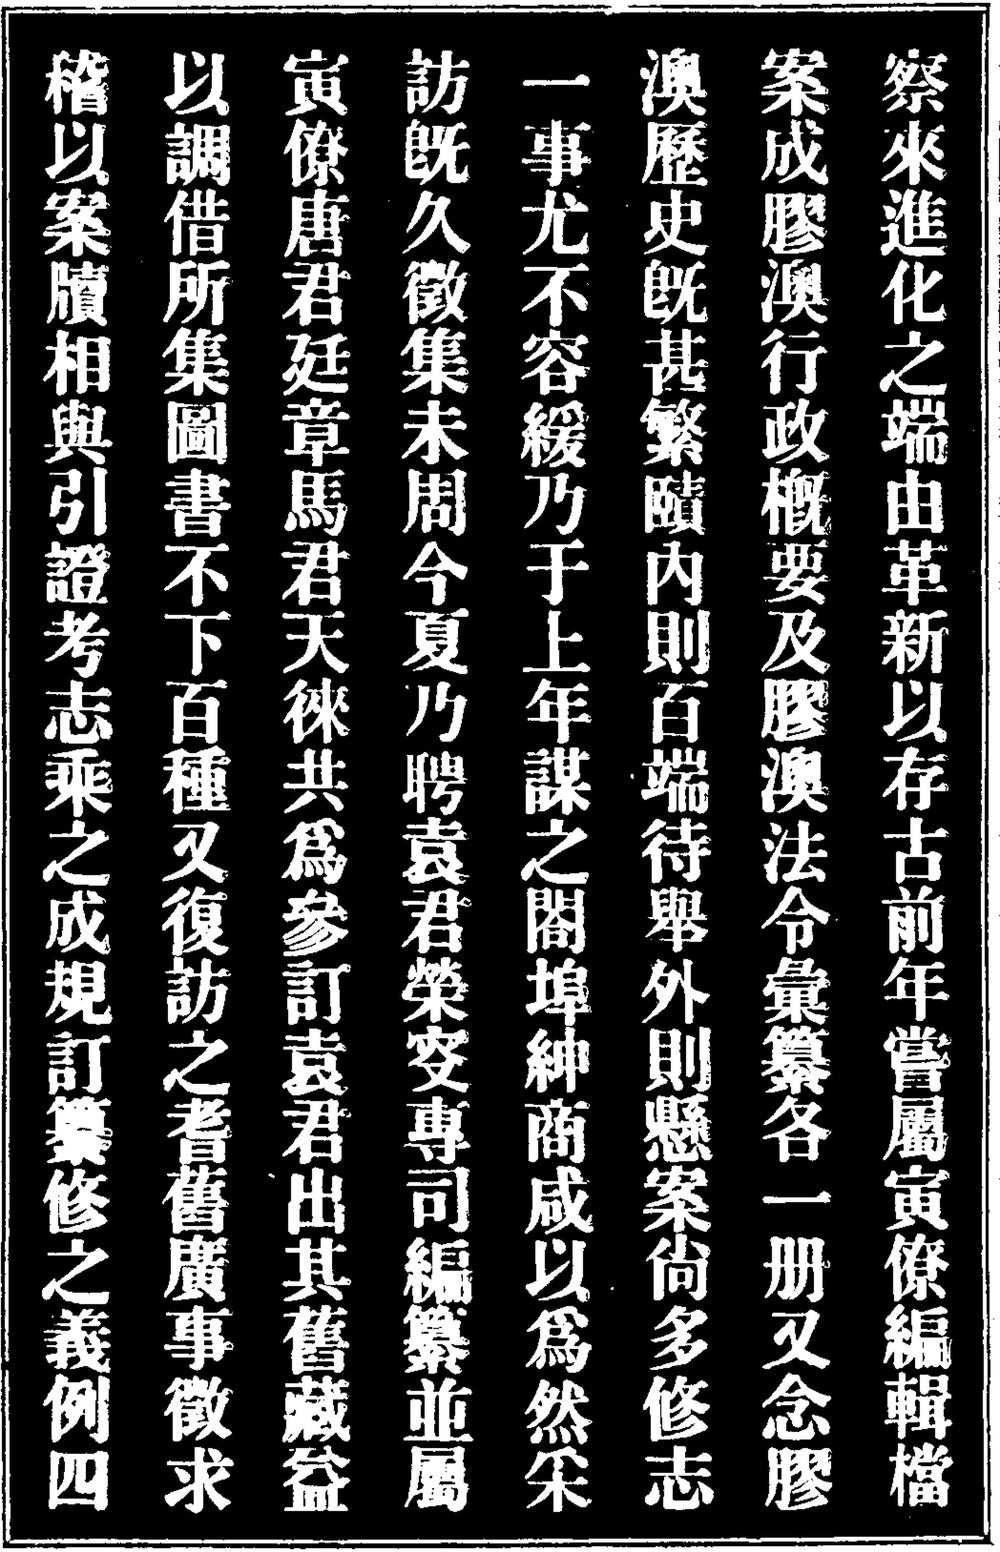 察來進化之端由革新以存古前年嘗屬寅僚編輯檔
案成膠澳行政概要及膠澳法令彙纂各一册又念膠
澳歷史既甚繁賾內則百端待舉外則懸案尙多修志
一事尤不容緩乃于上年謀之閤埠紳商咸以爲然采
訪既久徵集未周今夏乃聘袁君榮叜專司編纂並屬
寅僚唐君廷章馬君天徠共爲參訂袁君出其舊藏益
以調借所集圖書不下百種又復訪之耆舊廣事徵求
稽以案牘相與引證考志乘之成規訂纂修之義例四